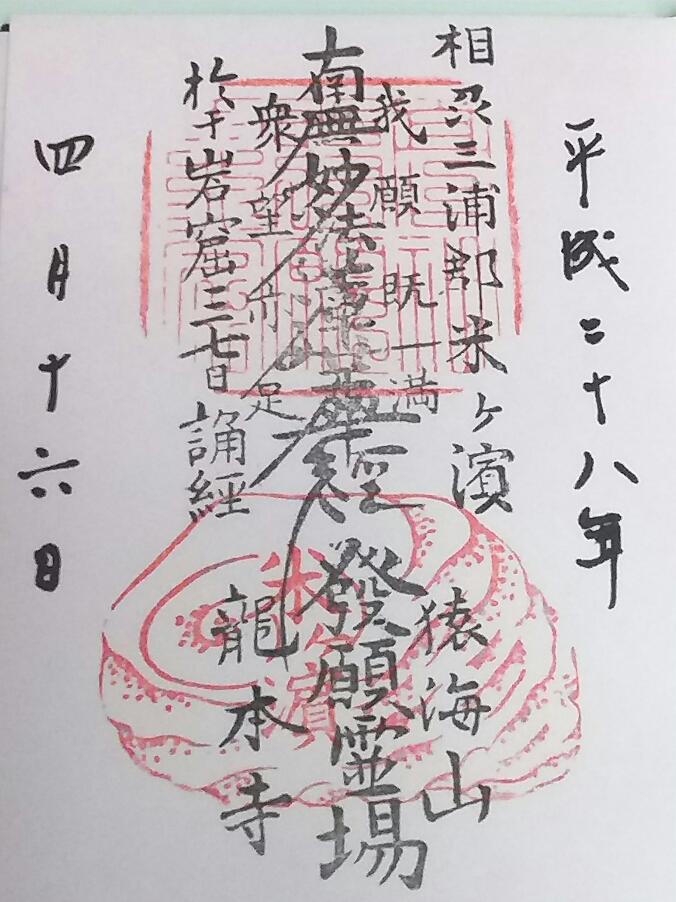 平成二十八年
相刕三浦郡米ヶ濱
猿海山
我願既満
南無妙法蓮華経
發願霊場
衆望亦足
於于岩窟三七日誦経
龍本寺
四月十六日
米ヶ濱